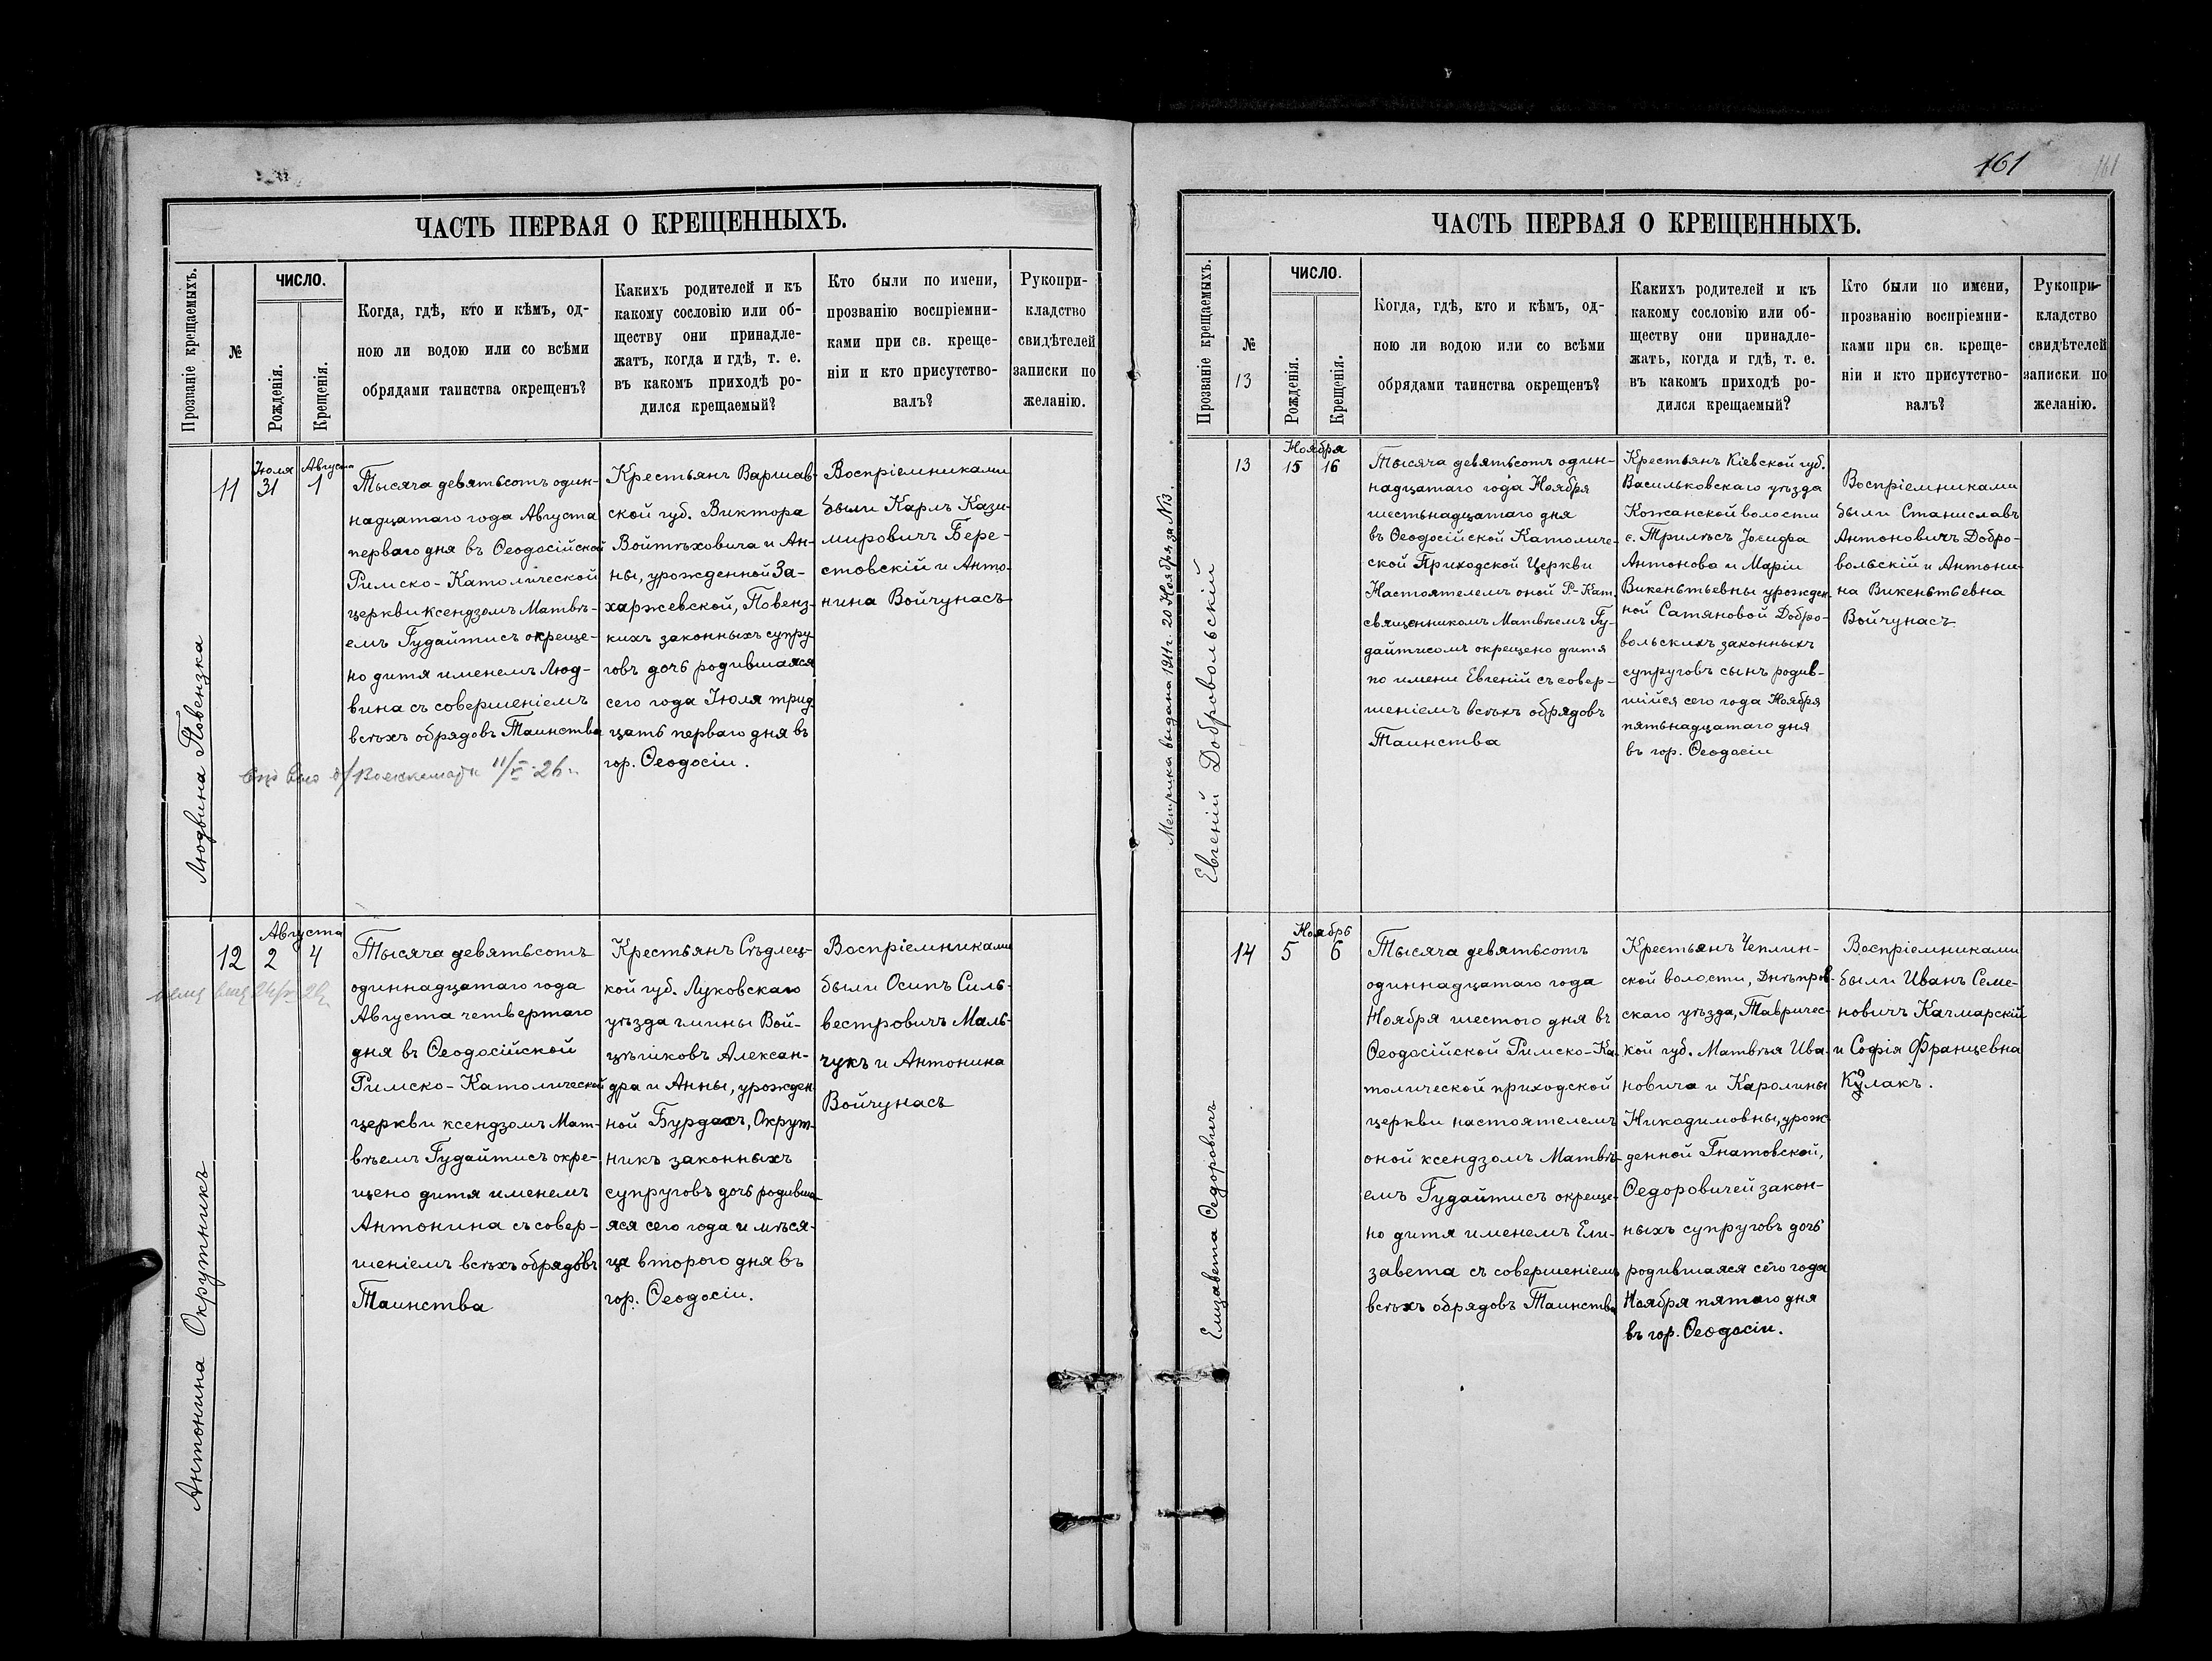 ЧАСТЬ ПЕРВАЯ О КРЕЩЕННЫХЪ.
Прозваніе крещаемыхъ.
№
ЧИСЛО.
Рожденія.
Крещенія.
Когда, гдѣ, кто и кѣмъ, од-
ною ли водою или со всѣми
обрядами таинства окрещенъ?
Какихъ родителей и къ
какому сословію или об-
ществу они принадле-
жатъ, когда и гдѣ, т. е.
въ какомъ приходѣ ро-
дился крещаемый?
Кто были по имени,
прозванію воспріемни-
ками при св. креще-
ніи и кто присутство-
валъ?
Рукопри-
кладство
свидѣтелей
записки по
желанію.
Людвина Повензка
11
Іюля
31
Августа
1
Тысяча девятьсотъ один-
надцатаго года Августа
перваго дня въ Ѳеодосійской
Римско-Католической
церкви ксендзомъ Матвѣ-
емъ Гудайтисъ окреще-
но дитя именемъ Люд-
вина съ совершеніемъ
всѣхъ обрядовъ Таинства
11/V 26 г.
Крестьянъ Варшав-
ской губ. Виктора
Войтѣховича и Ан-
ны, урожденной За-
харжевской, Повенз-
кихъ законныхъ супру-
говъ дочь родившаяся
сего года Іюля трид-
цать перваго дня въ
гор. Ѳеодосіи.
Воспріемниками
были Карлъ Кази-
мировичъ Бере-
стовскій и Анто-
нина Войчунасъ
Антонина Окрутникъ
12
Августа
2
4
Тысяча девятьсотъ
одиннадцатаго года
Августа четвертаго
дня въ Ѳеодосійской
Римско-Католической
церкви ксендзомъ Мат-
вѣемъ Гудайтисъ окре-
щено дитя именемъ
Антонина съ совер-
шеніемъ всѣхъ обрядовъ
Таинства
Крестьянъ Сѣдлец-
кой губ. Луковскаго
уѣзда гмины Вой-
цѣшковъ Алексан-
дра и Анны, урожден-
ной Бурдахъ, Окрут-
никъ законныхъ
супруговъ дочь родивша-
яся сего года и мѣся-
ца второго дня въ
гор. Ѳеодосіи.
Воспріемниками
были Осипъ Силь-
вестровичъ Маль-
чукъ и Антонина
Войчунасъ
161
161
ЧАСТЬ ПЕРВАЯ О КРЕЩЕННЫХЪ.
Прозваніе крещаемыхъ.
№
13
ЧИСЛО.
Рожденія.
Крещенія.
Когда, гдѣ, кто и кѣмъ, од-
ною ли водою или со всѣми
обрядами таинства окрещенъ?
Какихъ родителей и къ
какому сословію или об-
ществу они принадле-
жать, когда и гдѣ, т. е.
въ какомъ приходѣ ро-
дился крещаемый?
Кто были по имени,
прозванію воспріемни-
ками при св. креще-
ніи и кто присутство-
валъ?
Рукопри-
кладство
свидѣтелей
записки по
желанію.
Метрика выдана 1911 г. 20 Ноября за №13.
Евгеній Добровольскій
13
Ноября
15
16
Тысяча девятьсотъ один-
надцатаго года Ноября
шестьнадцатаго дня
въ Ѳеодосійской Католиче-
ской Приходской Церкви
Настоятелемъ оной Р-Кат.
священникомъ Матвѣемъ Гу-
дайтисомъ окрещено дитя
по имени Евгеній съ совер-
шеніемъ всѣхъ обрядовъ
Таинства
Крестьянъ Кіевской губ.
Васильковскаго уѣзда
Кожанской волости
с. Трилѣсъ Іосифа
Антонова и Маріи
Викентьевны урожден-
ной Сатяновой Добро-
вольскихъ законныхъ
супруговъ сынъ родив-
шійся сего года Ноября
пятьнадцатаго дня
въ гор. Ѳеодосіи
Воспріемниками
были Станиславъ
Антоновичъ Добро-
вольскій и Антони-
на Викентьевна
Войчунасъ
Елизавета Ѳедоровичъ
14
Ноябрь
5
6
Тысяча девятьсотъ
одиннадцатаго года
Ноября шестого дня въ
Ѳеодосійской Римско-Ка-
толической приходской
церкви настоятелемъ
оной ксендзомъ Матвѣ-
емъ Гудайтисъ окреще-
но дитя именемъ Ели-
завета съ совершеніемъ
всѣхъ обрядовъ Таинства
Крестьянъ Чеплин-
ской волости, Днѣпров-
скаго уѣзда, Тавричес-
кой губ. Матвѣя Ива-
новича и Каролины
Никодимовны, урож-
денной Гнатовской,
Ѳедоровичей закон-
ныхъ супруговъ дочь
родившаяся сего года
Ноября пятаго дня
въ гор. Ѳеодосіи.
Воспріемниками
были Иванъ Семе-
новичъ Качмарскій
и Софія Францевна
Кулакъ.